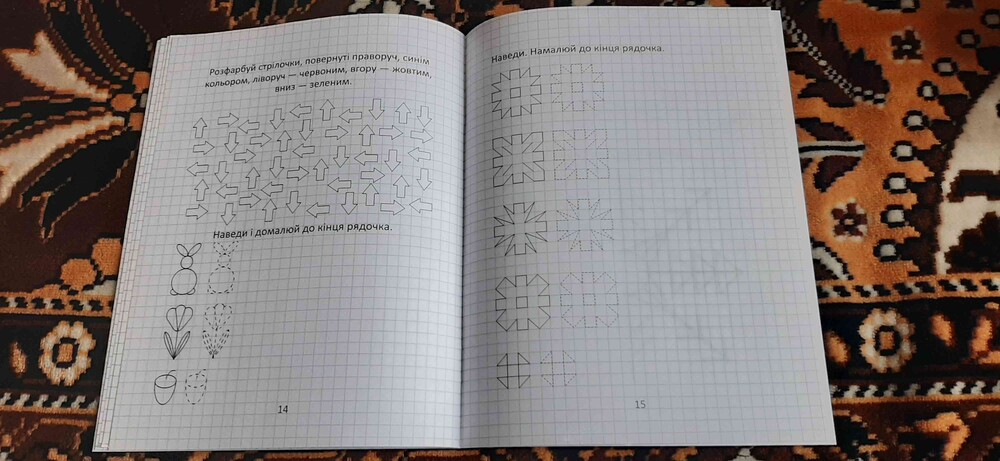 Розфарбуй стрілочки, повернуті праворуч, синім
кольором, ліворуч — червоним, вгору — жовтим,
вниз — зеленим.
Наведи і домалюй до кінця рядочка.
14
Наведи. Намалюй до кінця рядочка.
15